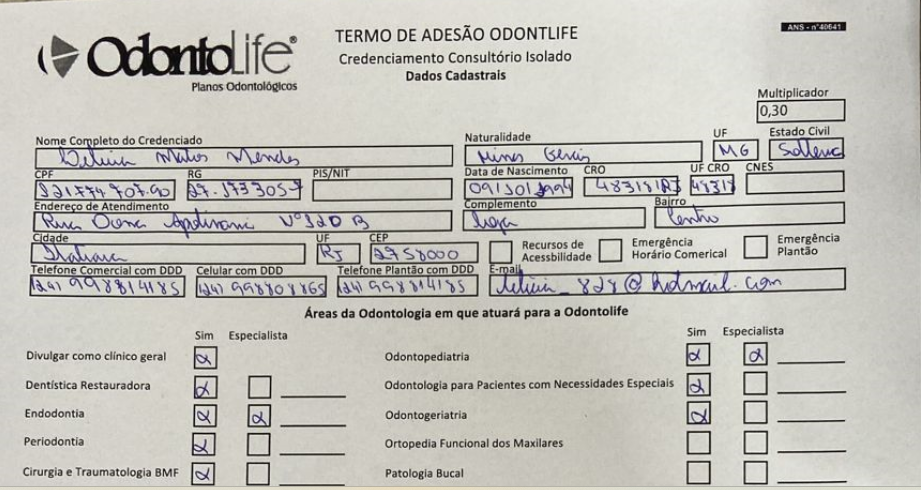 OdontoLife®
Planos Odontológicos
TERMO DE ADESÃO ODONTLIFE
Credenciamento Consultório Isolado
Dados Cadastrais
ANS - nº40641
Multiplicador
0,30
Nome Completo do Credenciado Naturalidade UF Estado Civil
Matos Mendes Minas Gerais MG
CPF RG PIS/NIT Data de Nascimento CRO UF CRO CNES
Endereço de Atendimento Complemento Bairro
Rua Dona loja Centro
Cidade UF CEP
RJ 2758000
Recursos de Acessbilidade
Emergência Horário Comerical
Emergência Plantão
Telefone Comercial com DDD Celular com DDD Telefone Plantão com DDD E-mail
(24) 998814185 (24) 998808865 (24) 998814185
Áreas da Odontologia em que atuará para a Odontolife
Sim Especialista Sim Especialista
Divulgar como clínico geral Odontopediatria
Dentística Restauradora Odontologia para Pacientes com Necessidades Especiais
Endodontia Odontogeriatria
Periodontia Ortopedia Funcional dos Maxilares
Cirurgia e Traumatologia BMF Patologia Bucal